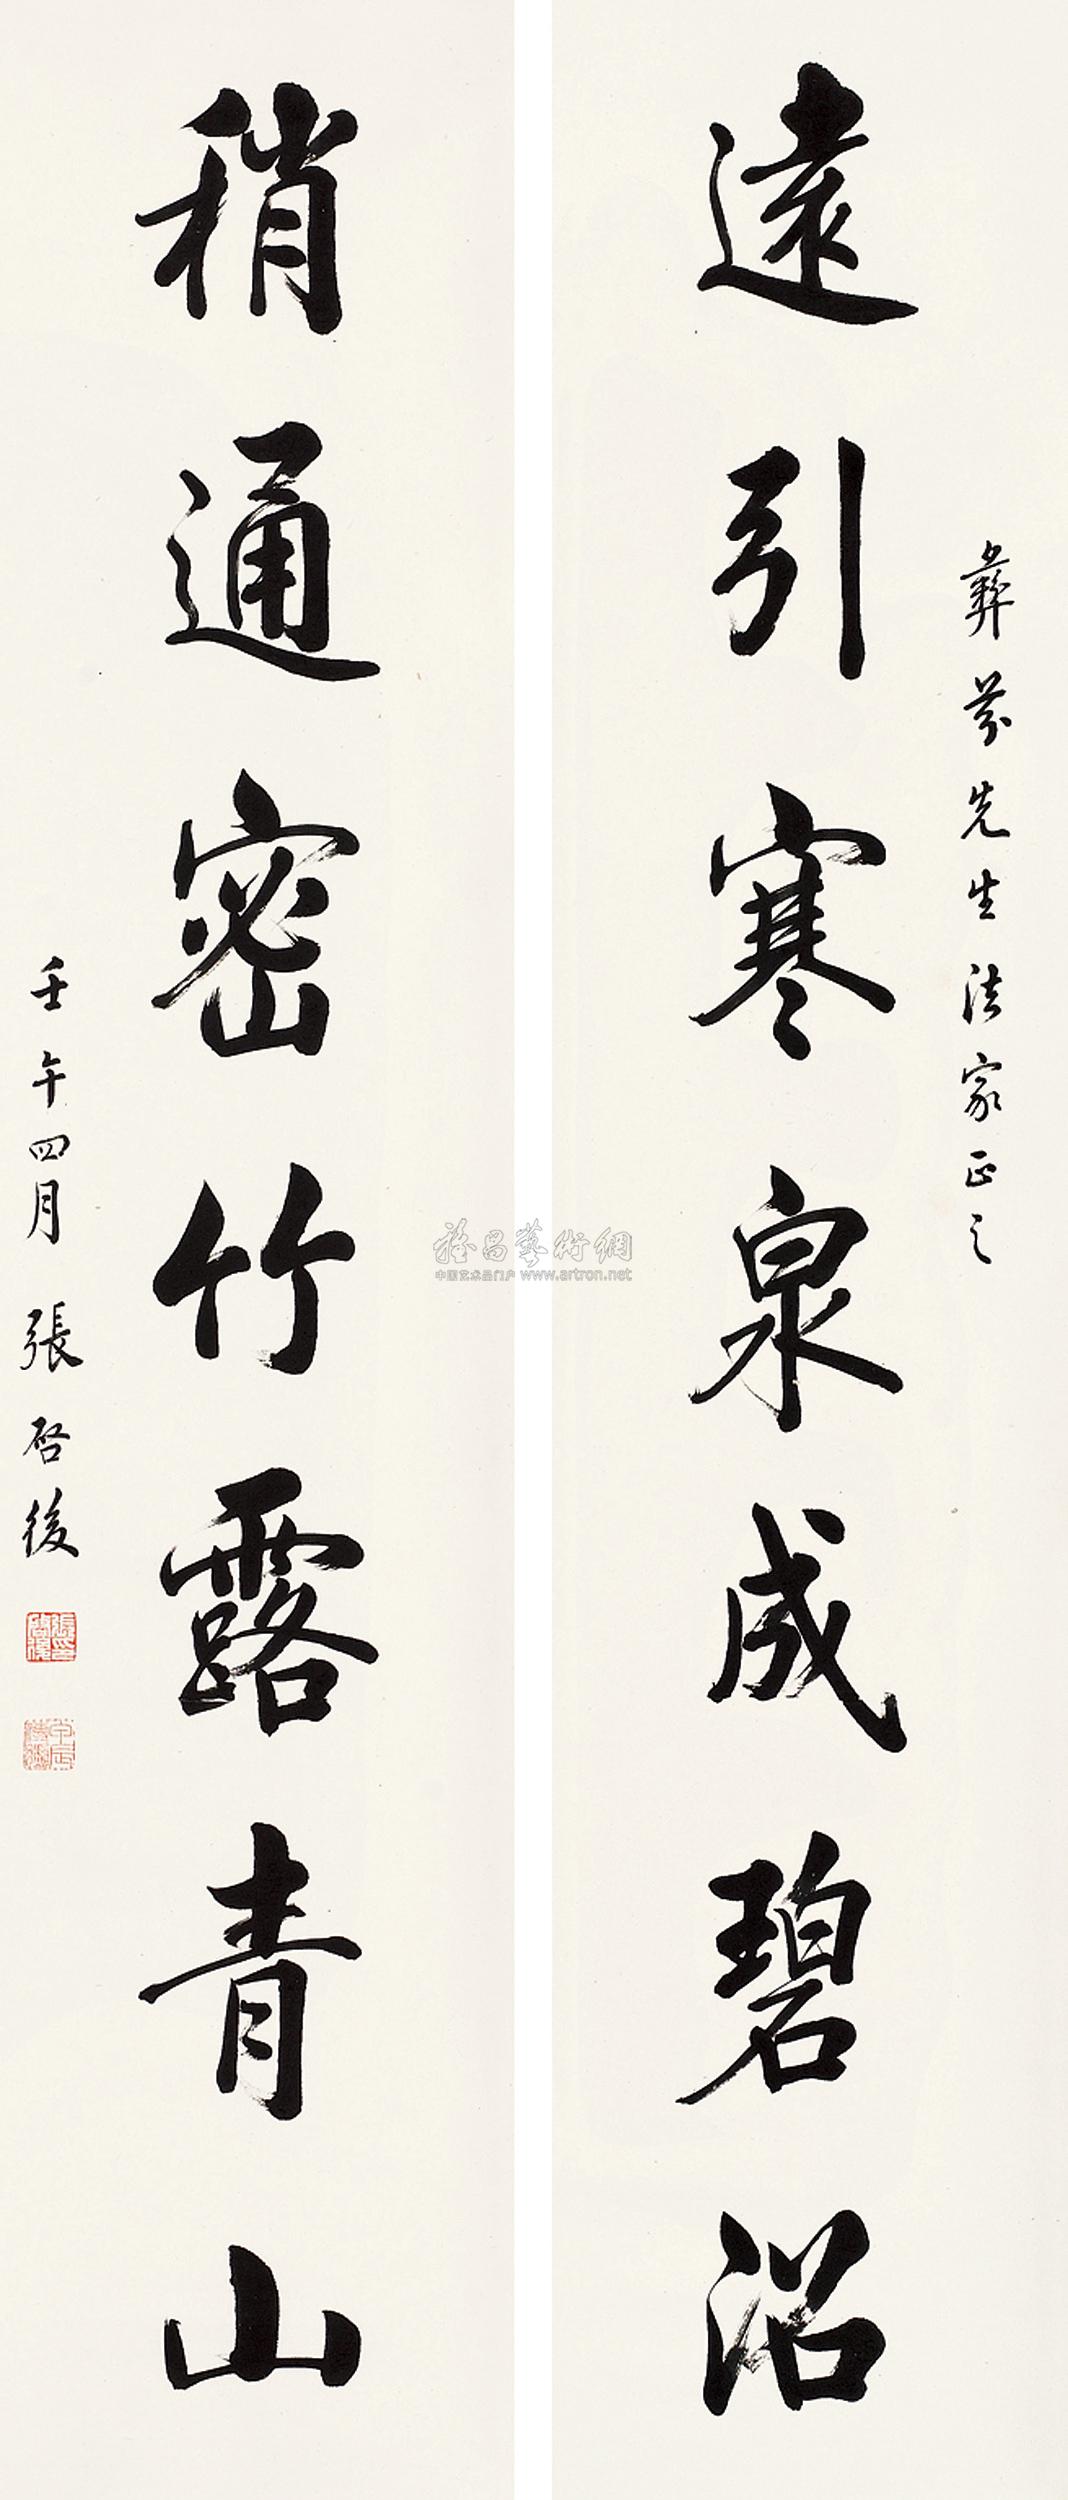 彝芬先生法家正之
遠引寒泉成碧沼
稍通密竹露青山
壬午四月 張啓後
雅昌藝術網
中国艺术品门户 www.artron.net